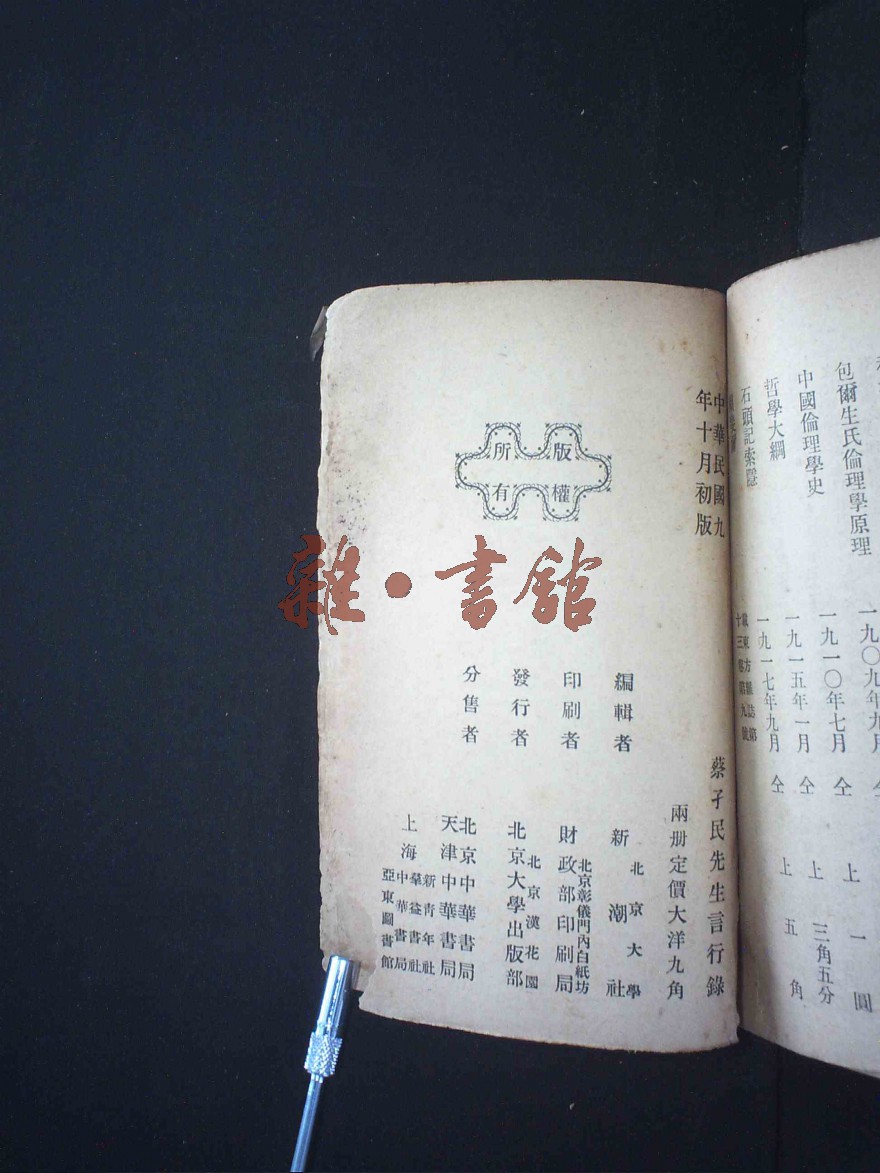 包爾生氏倫理學原理
一九〇九年九月
仝
中國倫理學史
一九一〇年七月
仝上
一圓
哲學大綱
一九一五年一月
仝上
三角五分
石頭記索隱
一九一七年九月
仝上
五角
載東方雜誌第
十三卷第九號
中華民國九
年十月初版
版權
所有
蔡孑民先生言行錄
兩册定價大洋九角
編輯者
北京大學
新潮社
印刷者
北京彰儀門內白紙坊
財政部印刷局
發行者
北京漢花園
北京大學出版部
分售者
北京中華書局
天津中華書局
上海
新青年社
羣益書社
中華書局
亞東圖書館
雜·書館